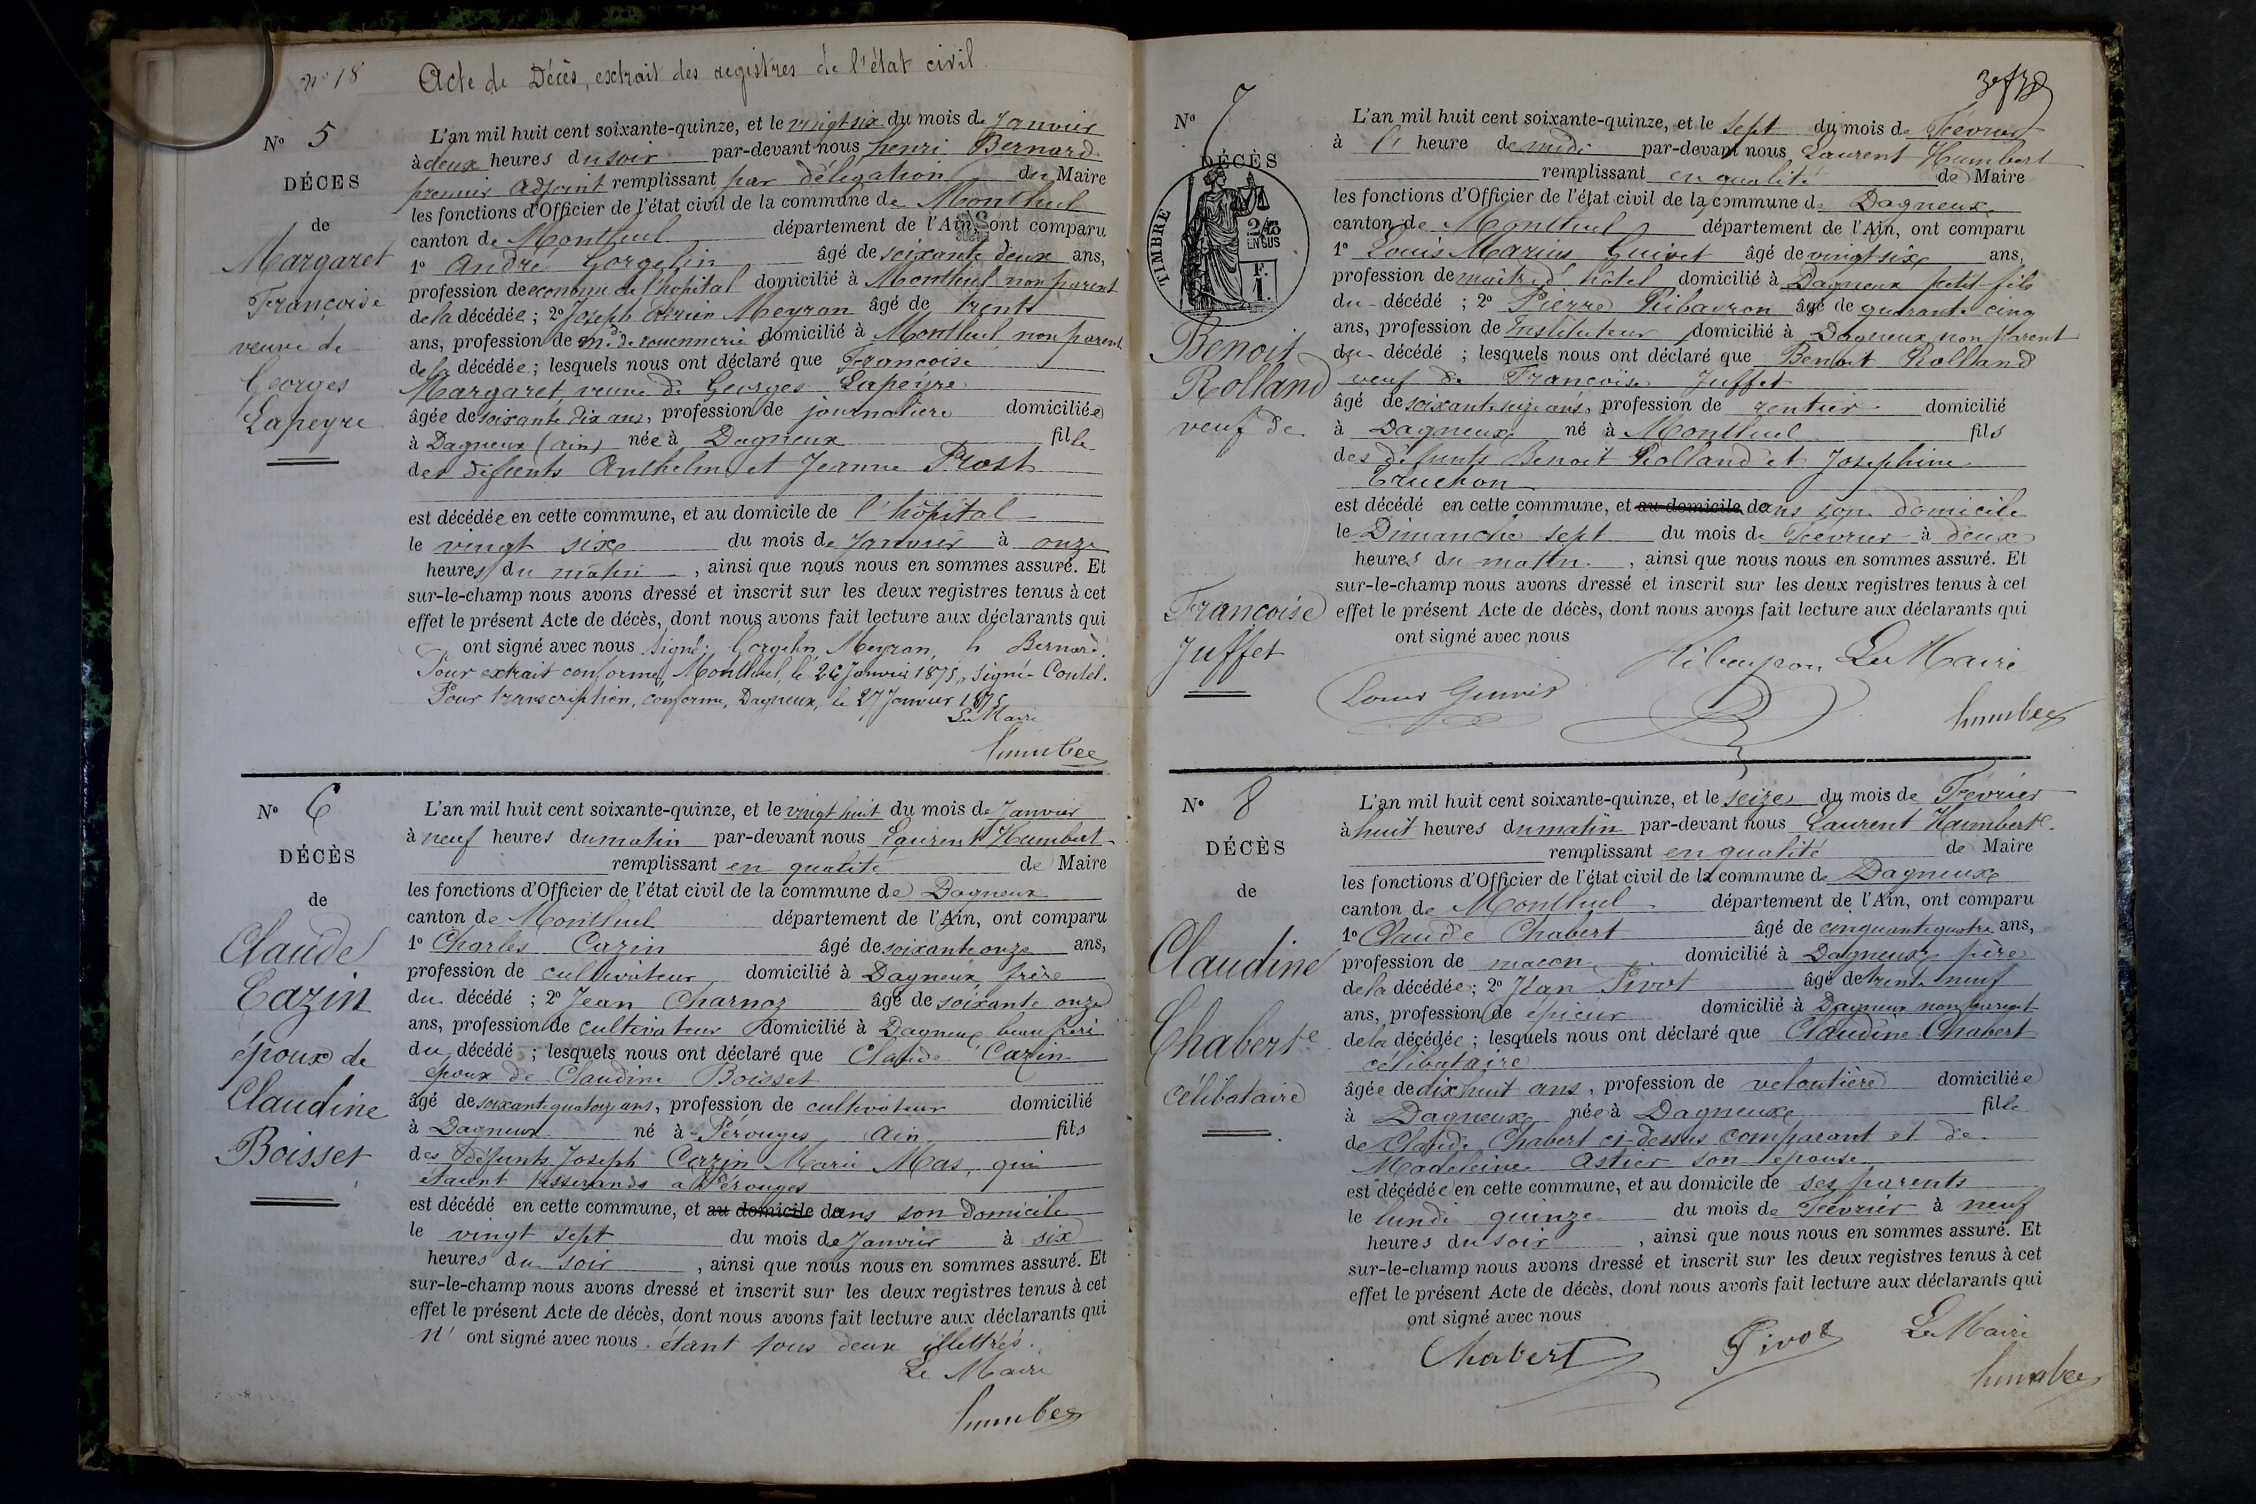 n° 18 Acte de Décès, extrait des registres de l'état civil.
N° 5
DÉCES
de
Margaret
Françoise
veuve de
Georges
Lapeyre
L'an mil huit cent soixante-quinze, et le vingt six du mois de Janvier
à deux heures du soir par-devant nous henri Bernard
premier adjoint remplissant par délégation du Maire
les fonctions d'Officier de l'état civil de la commune de Montluel
canton de Montluel département de l'Ain, ont comparu
1° André Gorgelin âgé de soixante deux ans,
profession de econome de l'hopital domicilié à Montluel non parent
de la décédée ; 2° Joseph Meyran âgé de trente
ans, profession de md de rouennerie domicilié à Montluel non parent
de la décédée ; lesquels nous ont déclaré que Françoise
Margaret, veuve de Georges Lapeyre
âgée de soixante dix ans, profession de journaliere domiciliée
à Dagneux (ain) née à Dagneux fille
des défunts Anthelme et Jeanne Prost
est décédée en cette commune, et au domicile de l'hôpital
le vingt six du mois de Janvier à onze
heures du matin , ainsi que nous nous en sommes assuré. Et
sur-le-champ nous avons dressé et inscrit sur les deux registres tenus à cet
effet le présent Acte de décès, dont nous avons fait lecture aux déclarants qui
ont signé avec nous signé: Gorgelin, Meyran, h Bernard.
Pour extrait conforme, Montluel, le 26 Janvier 1875, signé
Pour transcription, conforme, Dagneux, le 27 Janvier 1875
Le Maire
humbert
N° 6
DÉCÈS
de
Claude
Cazin
époux de
Claudine
Boisset
L'an mil huit cent soixante-quinze, et le vingt huit du mois de Janvier
à neuf heures du matin par-devant nous Laurent Humbert
remplissant en qualité de Maire
les fonctions d'Officier de l'état civil de la commune de Dagneux
canton de Montluel département de l'Ain, ont comparu
1° Charles Cazin âgé de soixante onze ans,
profession de cultivateur domicilié à Dagneux, frère
du décédé ; 2° Jean Charnoz âgé de soixante onze
ans, profession de cultivateur domicilié à Dagneux beau frère
du décédé ; lesquels nous ont déclaré que Claude Cazin
époux de Claudine Boisset
âgé de soixante quatorze ans, profession de cultivateur domicilié
à Dagneux né à Pérouges Ain fils
des défunts Joseph Cazin Marie Mas, qui
étaient tisserands à Pérouges
est décédé en cette commune, et au domicile dans son domicile
le vingt sept du mois de Janvier à six
heures du soir , ainsi que nous nous en sommes assuré. Et
sur-le-champ nous avons dressé et inscrit sur les deux registres tenus à cet
effet le présent Acte de décès, dont nous avons fait lecture aux déclarants qui
n' ont signé avec nous. étant tous deux illettrés.
Le Maire
humbert
N° 7
DÉCÈS
TIMBRE
2/10
EN SUS
F.
1.
Benoit
Rolland
veuf de
Françoise
Juffet
L'an mil huit cent soixante-quinze, et le sept du mois de Février
à heure de midi par-devant nous Laurent Humbert
remplissant en qualité de Maire
les fonctions d'Officier de l'état civil de la commune de Dagneux
canton de Montluel département de l'Ain, ont comparu
1° Louis Marius Guivet âgé de vingt six ans,
profession de maître d'hôtel domicilié à Dagneux petit-fils
du décédé ; 2° Pierre âgé de quarante cinq
ans, profession de Instituteur domicilié à Dagneux non parent
du décédé ; lesquels nous ont déclaré que Benoit Rolland
veuf de Françoise Juffet
âgé de soixante seize ans, profession de rentier domicilié
à Dagneux né à Montluel fils
des défunts Benoit Rolland et Josephine
Truchon
est décédé en cette commune, et au domicile dans son domicile
le Dimanche sept du mois de Février à deux
heures du matin. , ainsi que nous nous en sommes assuré. Et
sur-le-champ nous avons dressé et inscrit sur les deux registres tenus à cet
effet le présent Acte de décès, dont nous avons fait lecture aux déclarants qui
ont signé avec nous
Le Maire
humbert
N° 8
DÉCÈS
de
Claudine
Chabert
célibataire
L'an mil huit cent soixante-quinze, et le seize du mois de Février
à huit heures du matin par-devant nous Laurent Humbert
remplissant en qualité de Maire
les fonctions d'Officier de l'état civil de la commune de Dagneux
canton de Montluel département de l'Ain, ont comparu
1° Claude Chabert âgé de cinquante quatre ans,
profession de maçon domicilié à Dagneux père
de la décédée ; 2° Jean Pivot âgé de trente neuf
ans, profession de épicier domicilié à Dagneux non parent
de la décédée ; lesquels nous ont déclaré que Claudine Chabert
célibataire
âgée de dix huit ans, profession de veloutière domiciliée
à Dagneux née à Dagneux fille
de Claude Chabert ci-dessus comparant et de
Madeleine Astier son épouse
est décédée en cette commune, et au domicile de ses parents
le lundi quinze du mois de Février à neuf
heures du soir , ainsi que nous nous en sommes assuré. Et
sur-le-champ nous avons dressé et inscrit sur les deux registres tenus à cet
effet le présent Acte de décès, dont nous avons fait lecture aux déclarants qui
ont signé avec nous
Chabert Pivot Le Maire
humbert